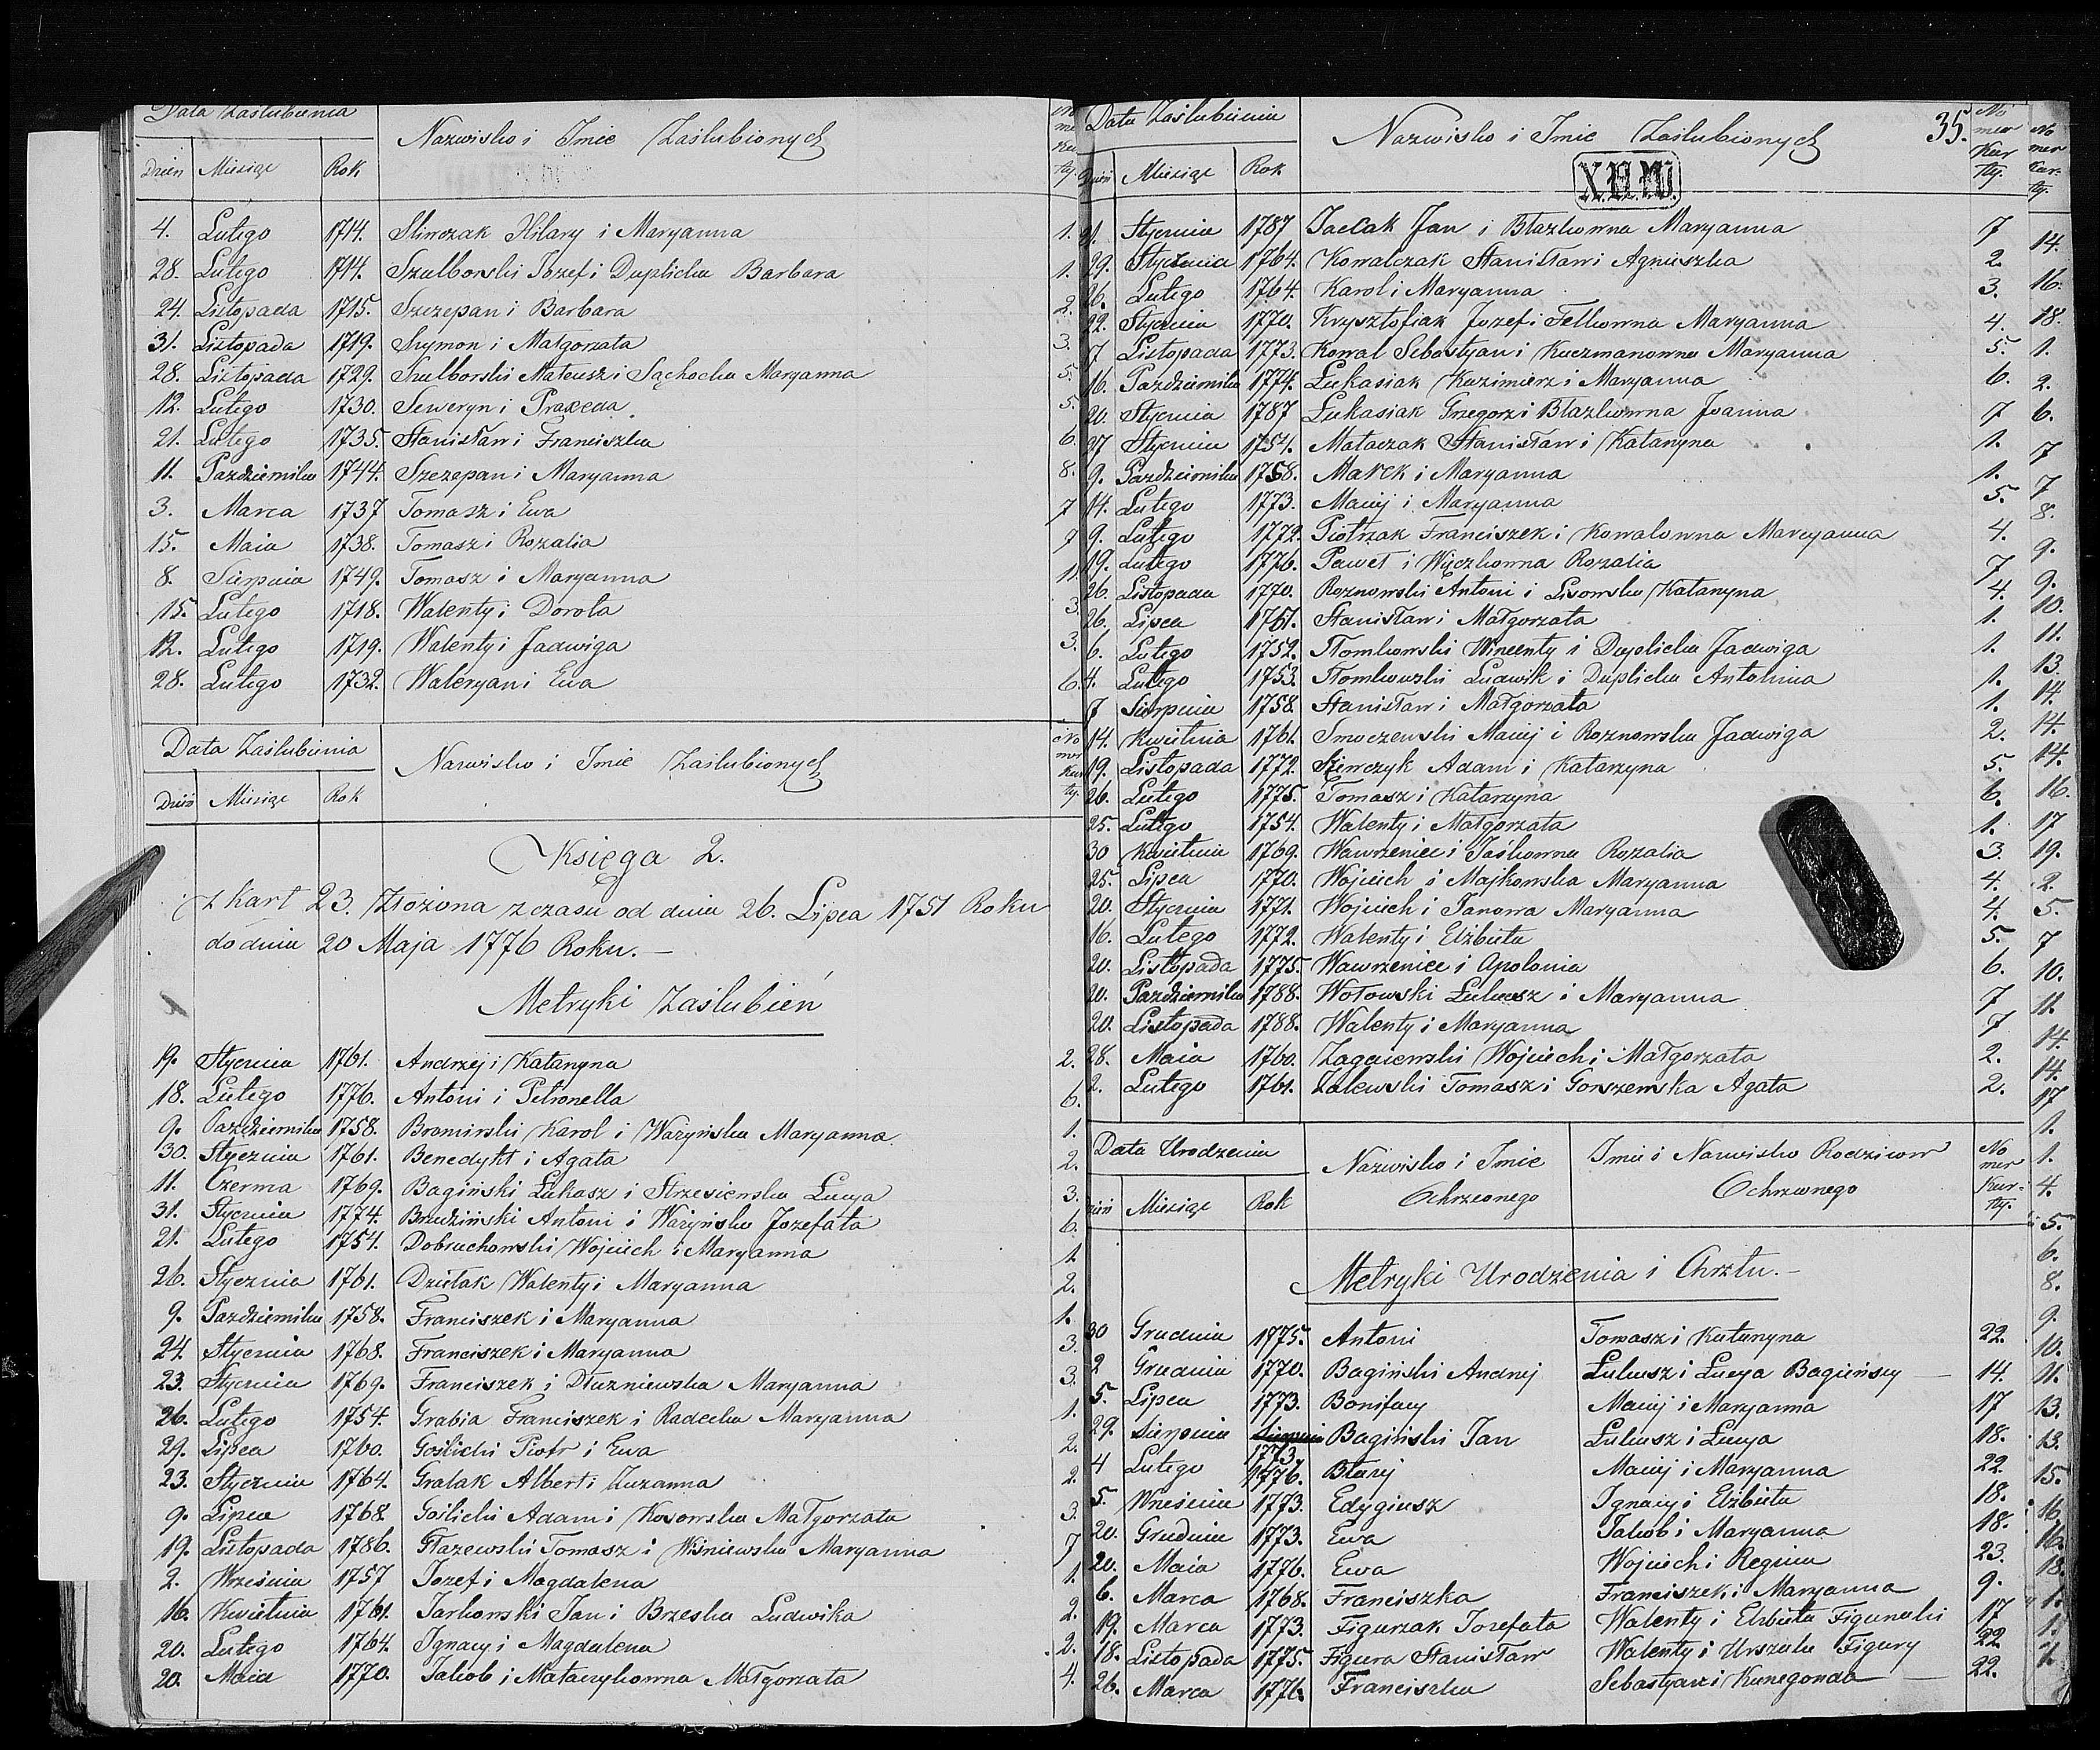 Data Zaślubienia
Nazwisko i Imie Zaślubionych
Dzień Miesiąc Rok
4. Lutego 1714. Sliwczak Hilary i Maryanna 1.
28. Lutego 1714. Szulborski Józef i Duplicka Barbara 1.
24. Listopada 1715. Szczepan i Barbara 2.
31. Listopada 1719. Szymon i Małgorzata 3.
28. Listopada 1729. Szulborski Mateusz i Sąchocka Maryanna 5.
12. Lutego 1730. Seweryn i Praxeda 5.
21. Lutego 1735. Stanisław i Franciszka 6.
11. Pazdziernika 1744. Szczepan i Maryanna 8.
3. Marca 1737 Tomasz i Ewa 7
15. Maia 1738. Tomasz i Rozalia 9
8. Sierpnia 1749. Tomasz i Maryanna 11.
15. Lutego 1718. Walenty i Dorota 3.
12. Lutego 1719. Walenty i Jadwiga 3.
28. Lutego 1732. Waleryan i Ewa 6.
Data Zaślubienia
Nazwisko i Imie Zaślubionych
Dzień Miesiąc Rok
Księga 2.
z kart 23. złożona z czasu od dnia 26. Lipca 1751 Roku
do dnia 20 Maja 1776 Roku. —
Metryki Zaślubień
19. Stycznia 1761. Andrzej i Katarzyna 2.
18. Lutego 1776. Antoni i Petronella 6.
9. Pazdziernika 1758. Bromirski Karol i Ważyńska Maryanna 1.
30. Stycznia 1761. Benedykt i Agata 2.
11. Czerwca 1769. Bagiński Łukasz i Strzesiewska Łucya 3.
31. Stycznia 1774. Brudziński Antoni i Ważyńska Jozefata 6.
21. Lutego 1754. Dobruchowski Wojciech i Maryanna 1.
26. Stycznia 1761. Dzietak Walenty i Maryanna 2.
9. Pazdziernika 1758. Franciszek i Maryanna 1.
24. Stycznia 1768. Franciszek i Maryanna 3.
23. Stycznia 1769. Franciszek i Dłuzniewska Maryanna 3.
26. Lutego 1754. Grabia Franciszek i Radecka Maryanna 1.
29. Lipca 1760. Goślicki Piotr i Ewa 2.
23. Stycznia 1764. Gralak Albert i Zuzanna 2.
9. Lipca 1768. Goślicki Adam i Kosowska Małgorzata 3.
19. Listopada 1786. Głazewski Tomasz i Wiśniewska Maryanna 7
2. Września 1757 Jozef i Magdalena 1.
16. Kwietnia 1761. Jarkowski Jan i Brzeska Ludwika 2.
20. Lutego 1764. Ignacy i Magdalena 2.
20. Maia 1770. Jakob i Mataczykowna Małgorzata 4.
Data Zaślubienia
Nazwisko i Imie Zaślubionych
35.
Numer Karty.
Dzień Miesiąc Rok
X.H.MU.
21. Stycznia 1787 Jaecak Jan i Błazkowna Maryanna 7
29. Stycznia 1764. Kowalczak Stanisław i Agnieszka 2.
26. Lutego 1764. Karol i Maryanna 3.
22. Stycznia 1770. Krzysztofiak Jozef i Felkowna Maryanna 4.
17 Listopada 1773. Kowal Sebastyan i Kaczmarowna Maryanna 5.
16. Pazdziernika 1774. Łukasiak Kazimierz i Maryanna 6.
20. Stycznia 1787 Łukasiak Grzegorz i Błazkowna Joanna 7
27 Stycznia 1754. Mataczak Stanisław i Katarzyna 1.
9. Pazdziernika 1758. Marek i Maryanna 1.
14. Lutego 1773. Maciej i Maryanna 5.
9. Lutego 1772. Piotrzak Franciszek i Kowalowna Maryanna 4.
19. Lutego 1776. Paweł i Więczkowna Rozalia 7
26. Listopada 1770. Roznowski Antoni i Lisowska Katarzyna 4.
26. Lipca 1761. Stanisław i Małgorzata 1.
6. Lutego 1752. Słomkowski Wincenty i Duplicka Jadwiga 1.
4. Lutego 1753. Słomkowski Ludwik i Duplicka Antonina 1.
7 Sierpnia 1758. Stanisław i Małgorzata 1.
14. Kwietnia 1761. Smoczewski Maciej i Roznowska Jadwiga 2.
19. Listopada 1772. Szewczyk Adam i Katarzyna 5.
26. Lutego 1775. Tomasz i Katarzyna 6.
25. Lutego 1754. Walenty i Małgorzata 1.
30 Kwietnia 1769. Wawrzeniec i Jaśkowna Rozalia 3.
25. Lipca 1770. Wojciech i Majkowska Maryanna 4.
20. Stycznia 1771. Wojciech i Janowa Maryanna 4.
16. Lutego 1772. Walenty i Elżbieta 5.
20. Listopada 1775. Wawrzeniec i Apolonia 6.
20. Pazdziernika 1788. Wołowski Łukasz i Maryanna 7
20. Listopada 1788. Walenty i Maryanna 7
28. Maia 1760. Zagaiewski Wojciech i Małgorzata 2.
2. Lutego 1761. Zalewski Tomasz i Gorszewska Agata 2.
Data Urodzenia
Nazwisko i Imie Ochrzconego
Imie i Nazwisko Rodziców Ochrzconego
Numer Karty.
Dzień Miesiąc Rok
Metryki Urodzenia i Chrztu. —
30 Grudnia 1775. Antoni Tomasz i Katarzyna 22.
2 Grudnia 1770. Bagiński Andrzej Łukasz i Łucya Bagińscy — 14.
5. Lipca 1773. Bonifacy Maciej i Maryanna 17
29. Sierpnia 1773. Bagiński Jan Łukasz i Łucya 18.
4 Lutego 1776. Błażej Maciej i Maryanna 22.
5. Wrześnie 1773. Edygiusz Ignacy i Elżbieta 18.
20. Grudnia 1773. Ewa Jakob i Maryanna 18.
20. Maia 1776. Ewa Wojciech i Regina 23.
6. Marca 1768. Franciszka Franciszek i Maryanna 9.
19. Marca 1773. Figurzak Jozefata Walenty i Elzbieta Figurzaki 17
18. Listopada 1775. Figura Stanisław Walenty i Urszula Figury 22
26. Marca 1776. Franciszka Sebastyan i Kunegonda — 22.
Numer Karty.
14.
16.
18.
1.
2.
6.
7
7
8.
9.
9.
10.
11.
13.
14.
14.
14.
16.
17
19.
2.
5.
7
10.
11.
14.
14.
17
1.
1.
4.
5.
6.
8.
9.
10.
11.
13.
13.
15.
16.
16.
18.
1.
1.